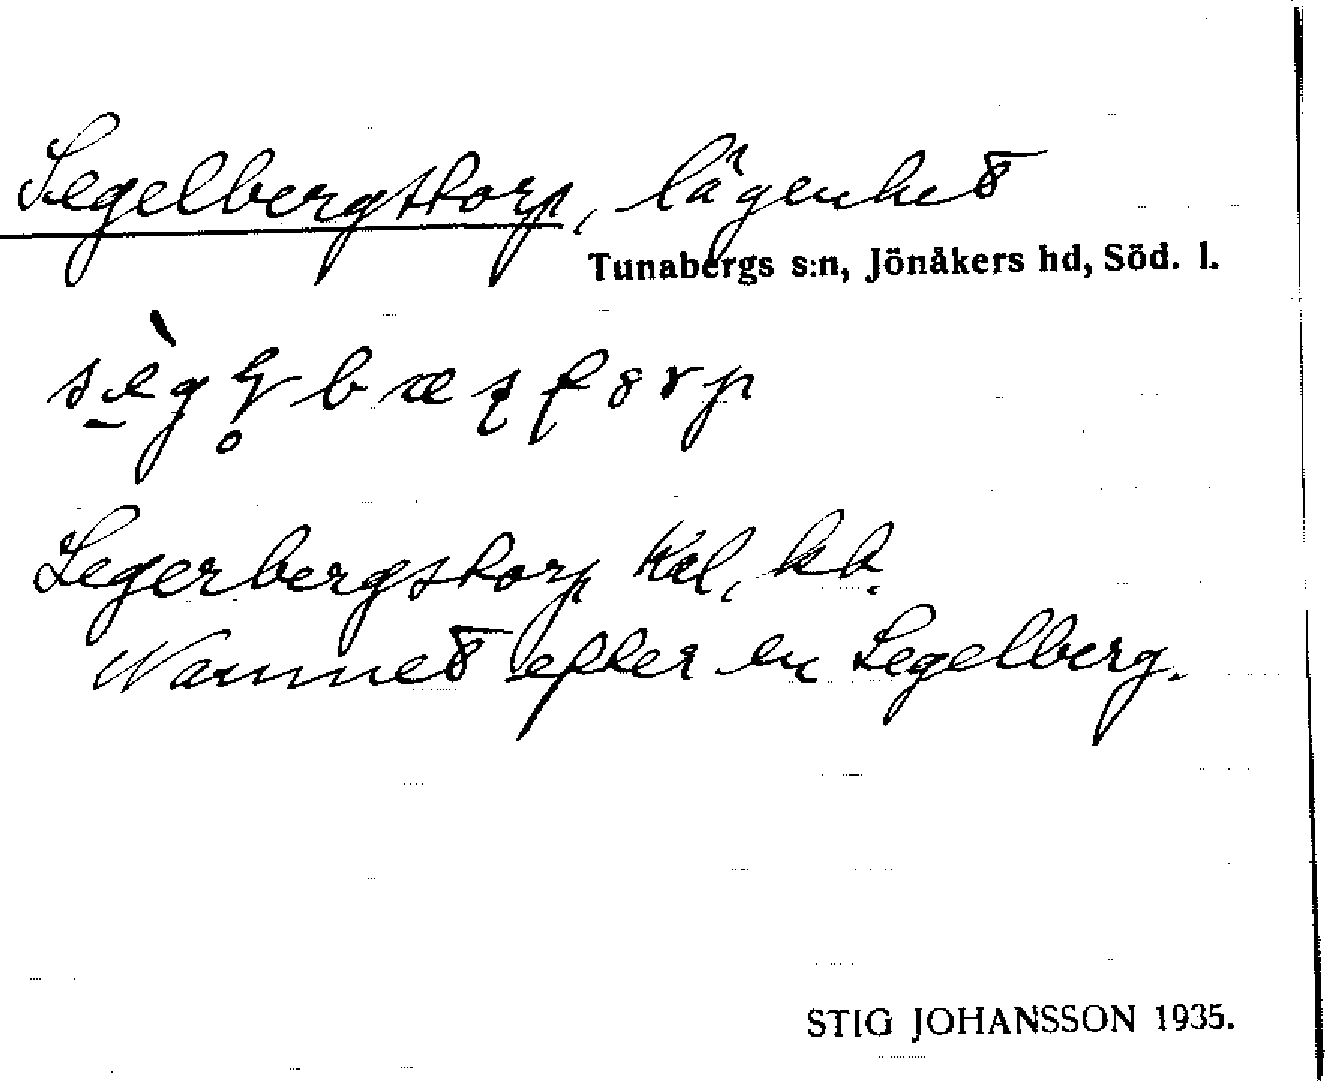 Segelbergstorp, lägenhet
Tunabergs s:n, Jönåkers hd, Söd. l.
Segerbergstorp Kal, kb.
Namnet efter en Segelberg.
STIG JOHANSSON 1935.